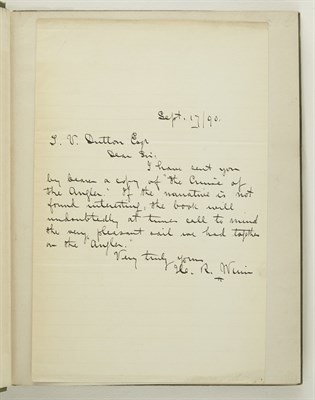 Sept. 17/90.
T. V. Dutton Esqr
Dear Sir,
I have sent you
by bearer a copy of "the Cruise of
the Angler." If the narrative is not
found interesting, the book will
undoubtedly at times call to mind
the very pleasant sail we had together
on the "Angler."
Very truly yours,
R.